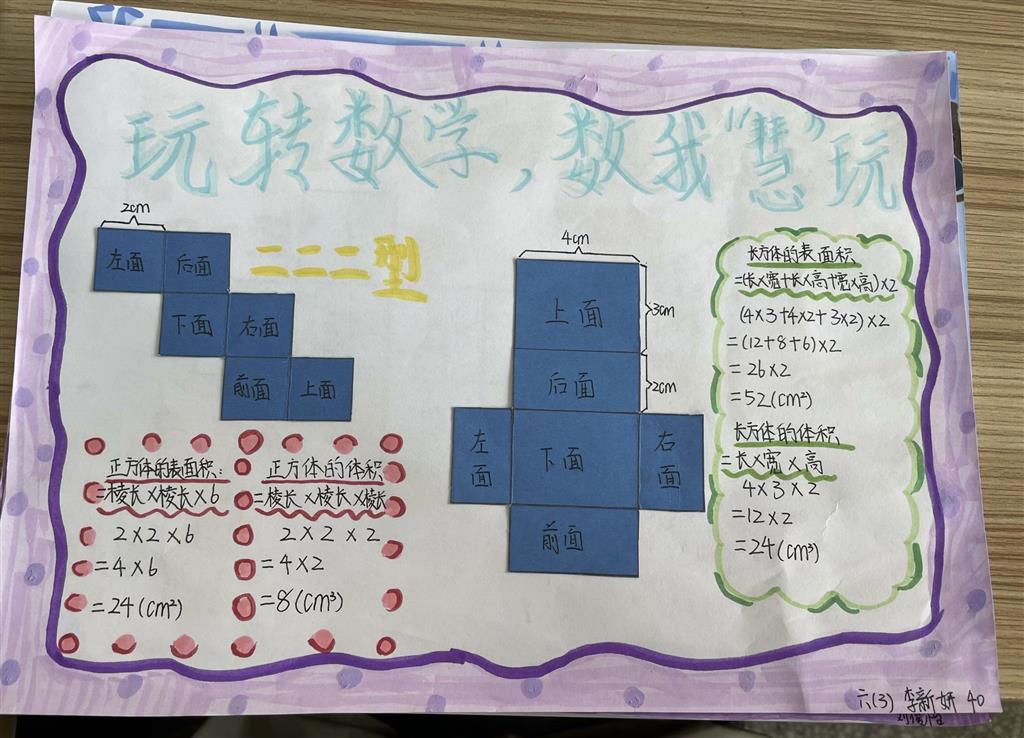 玩转数学，数我“慧”玩
2cm
左面 后面
二二二型
下面 右面
前面 上面
正方体的表面积：
=棱长×棱长×6
2×2×6
=4×6
=24(cm²)
正方体的体积
=棱长×棱长×棱长
2×2×2
=4×2
=8(cm³)
4cm
上面
3cm
后面
2cm
左面
下面
右面
前面
长方体的表面积
=(长×宽+长×高+宽×高)×2
(4×3+4×2+3×2)×2
=(12+8+6)×2
=26×2
=52(cm²)
长方体的体积
=长×宽×高
4×3×2
=12×2
=24(cm³)
六(3) 李新妍 40